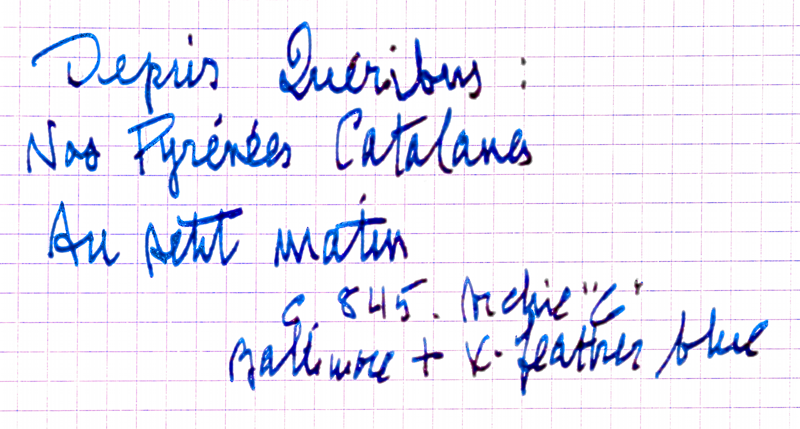 Depuis Quéribus :
Nos Pyrénées Catalanes
Au petit matin
C 845. Archie "C"
Baltimore + X-feather blue